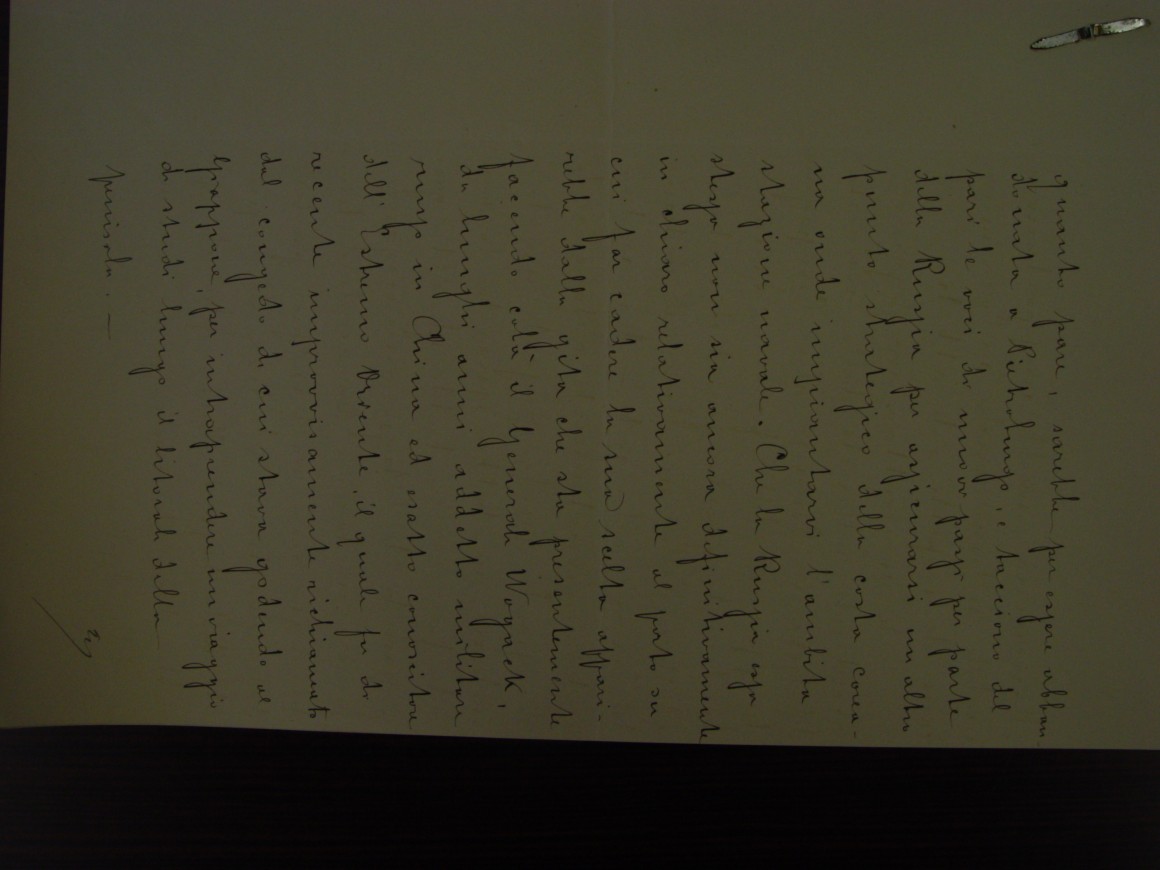 quanto pare, sarebbe per essere abban-
donata a Pietroburgo, e tacciono del
pari le voci di nuovi passi per parte
della Russia per assicurarsi un altro
punto strategico della costa corea-
na onde impiantarvi l'ambita
stazione navale. Che la Russia essa
stessa non sia ancora definitivamente
in chiaro relativamente al posto su
cui far cadere la sua scelta appari-
rebbe dalla gita che sta presentemente
facendo colà il Generale Wogack,
da lunghi anni addetto militare
russo in China ed esatto conoscitore
dell'Estremo Oriente, il quale fu di
recente improvvisamente richiamato
dal congedo di cui stava godendo al
Giappone, per intraprendere un viaggio
di studi lungo il litorale della
penisola. —